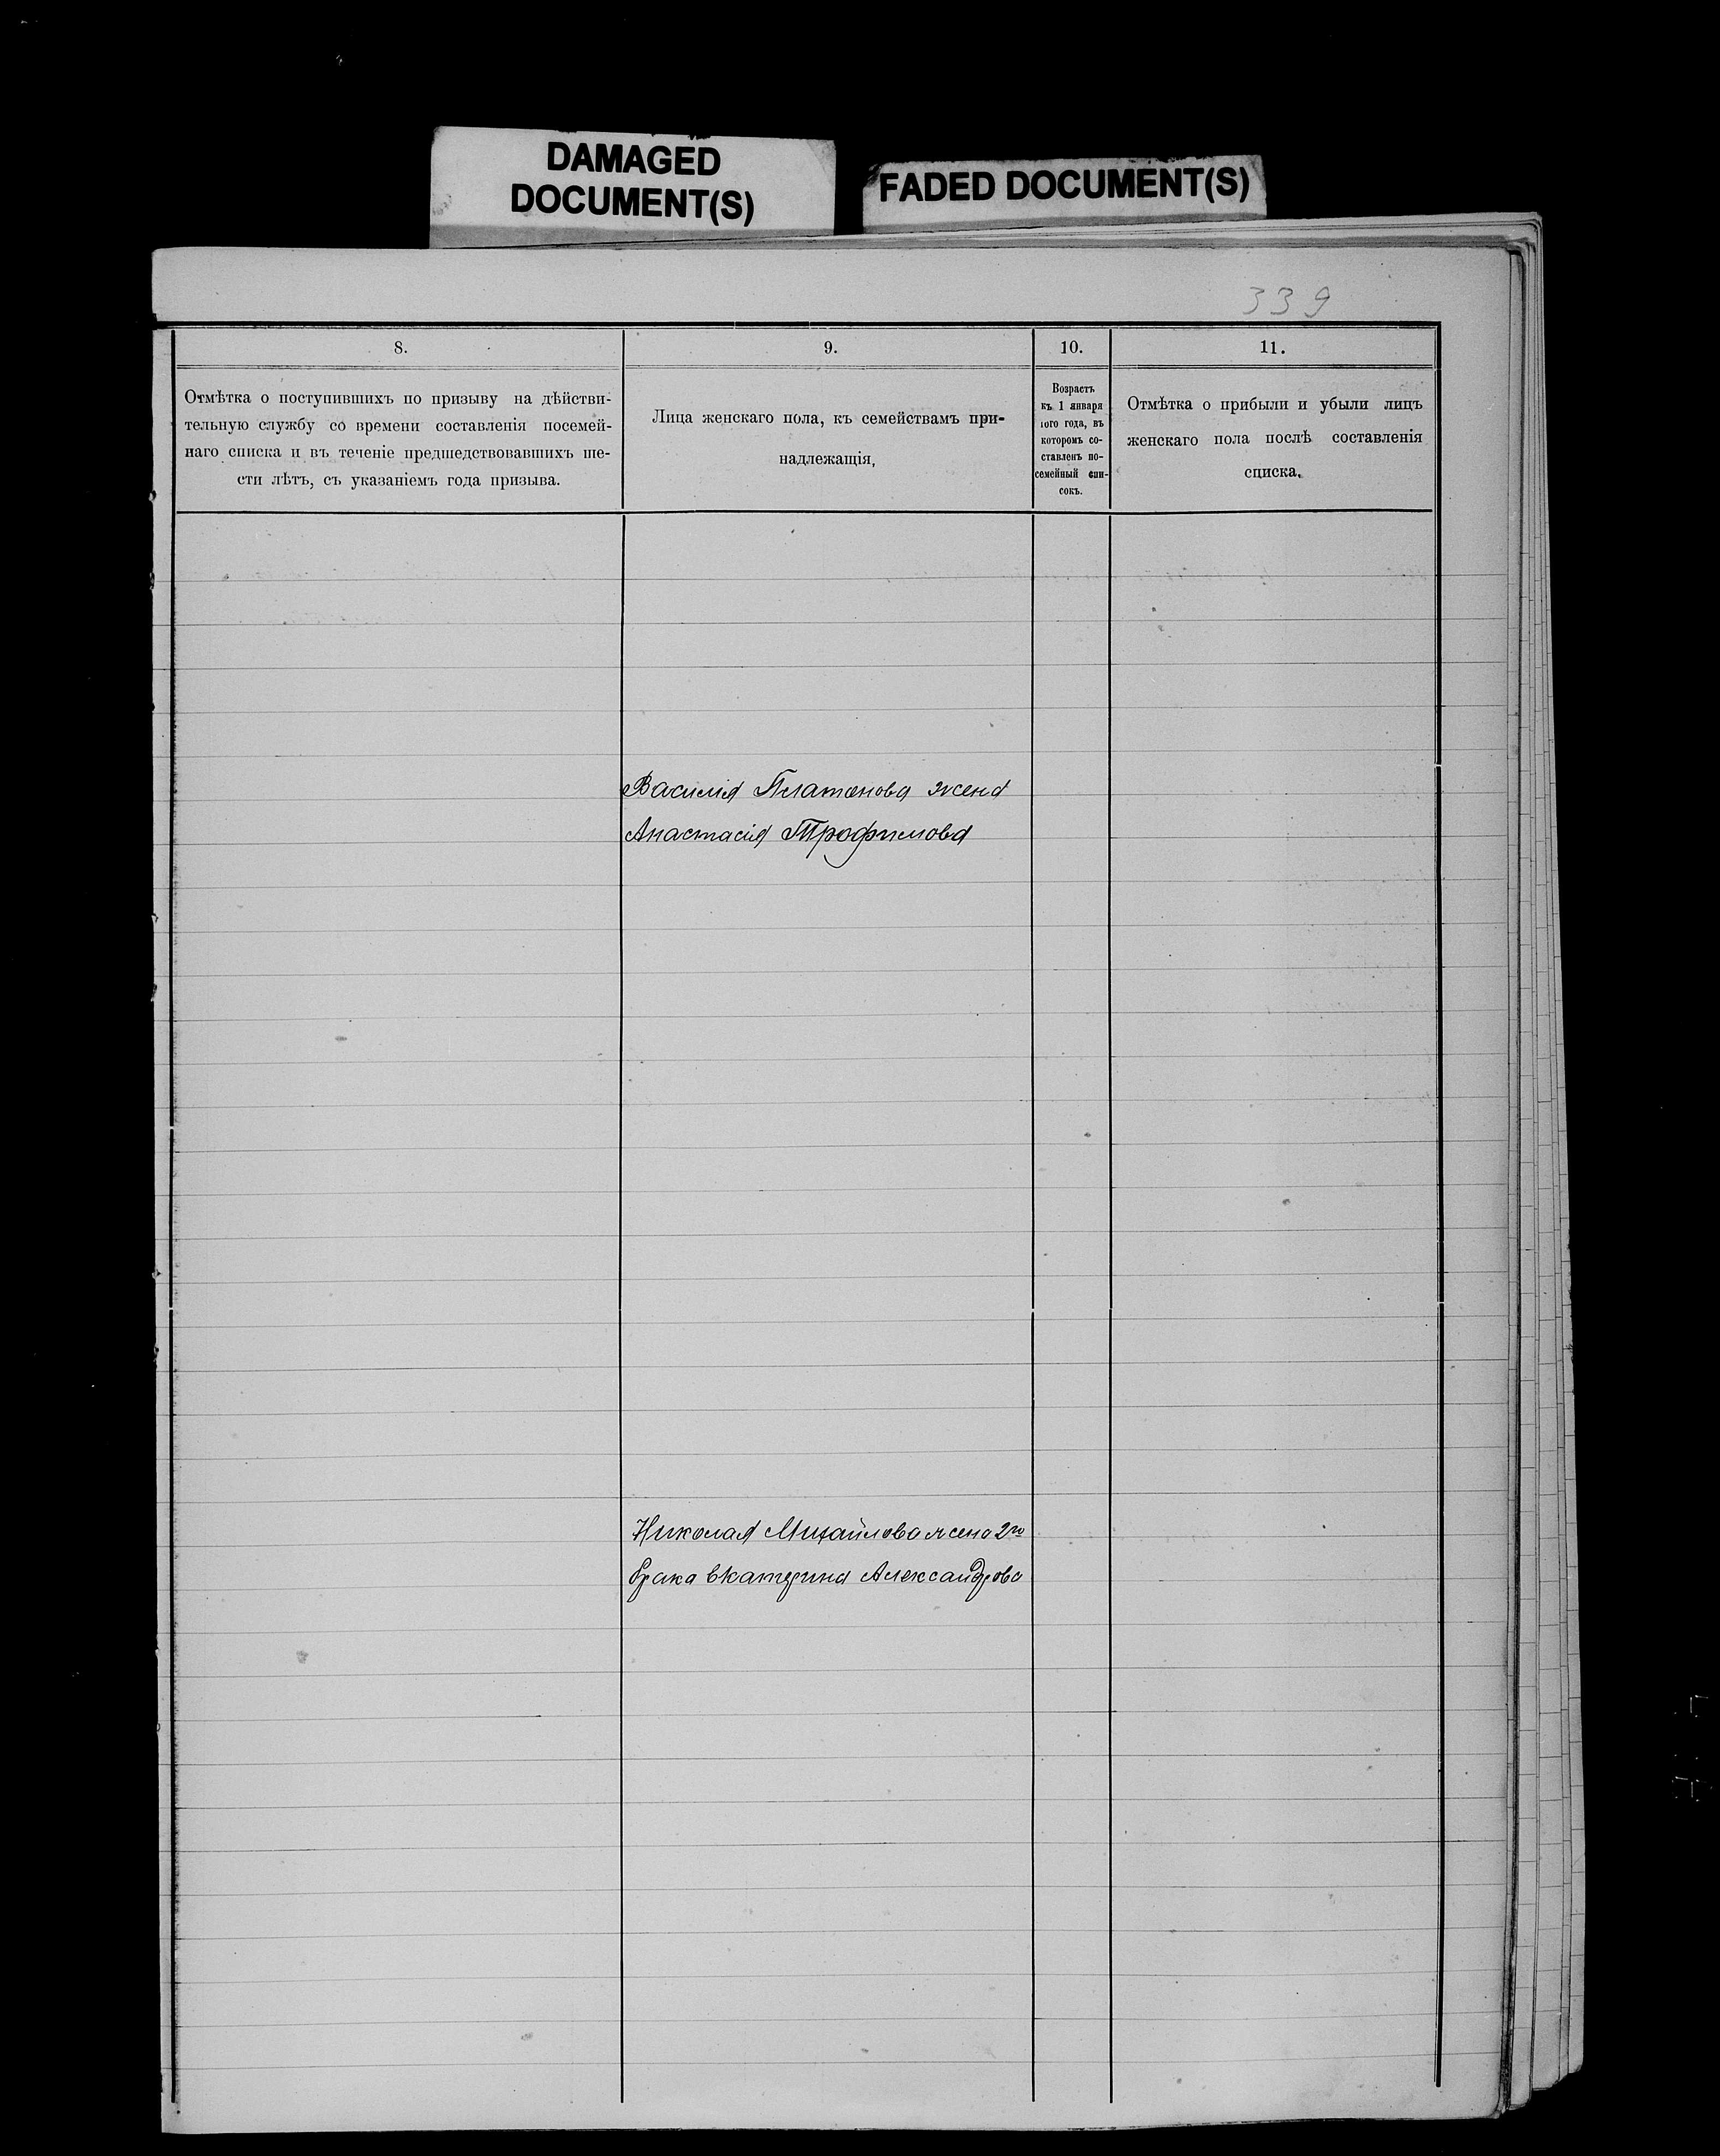 DAMAGED
DOCUMENT(S)
FADED DOCUMENT(S)
339
8.
Отмѣтка о поступившихъ по призыву на дѣйстви-
тельную службу со времени составленія посемей-
наго списка и въ теченіе предшедствовавшихъ ше-
сти лѣтъ, съ указаніемъ года призыва.
9.
Лица женскаго пола, къ семействамъ при-
надлежащія,
10.
Возрастъ
къ 1 января
того года, въ
которомъ со-
ставленъ по-
семейный спи-
сокъ.
11.
Отмѣтка о прибыли и убыли лицъ
женскаго пола послѣ составленія
списка.
Василія Платонова жена
Анастасія Трофимова
Николая Михайлова жена 2го
брака Екатерина Александрова